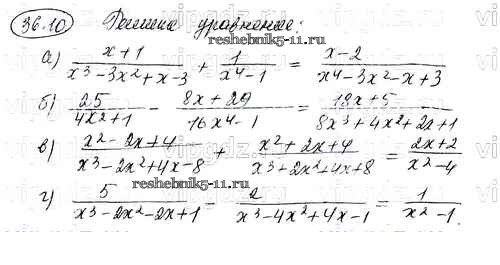 36.10 Решить уравнение:
reshebnik5-11.ru
а) x+1 / x³-3x²+x-3 + 1 / x⁴-1 = x-2 / x⁴-3x²-x+3
б) 25 / 4x²+1 - 8x+29 / 16x⁴-1 = 18x+5 / 8x³+4x²+2x+1
в) x²-2x+4 / x³-2x²+4x-8 + x²+2x+4 / x³+2x²+4x+8 = 2x+2 / x²-4
reshebnik5-11.ru
г) 5 / x³-2x²-2x+1 - 2 / x³-4x²+4x-1 = 1 / x²-1.